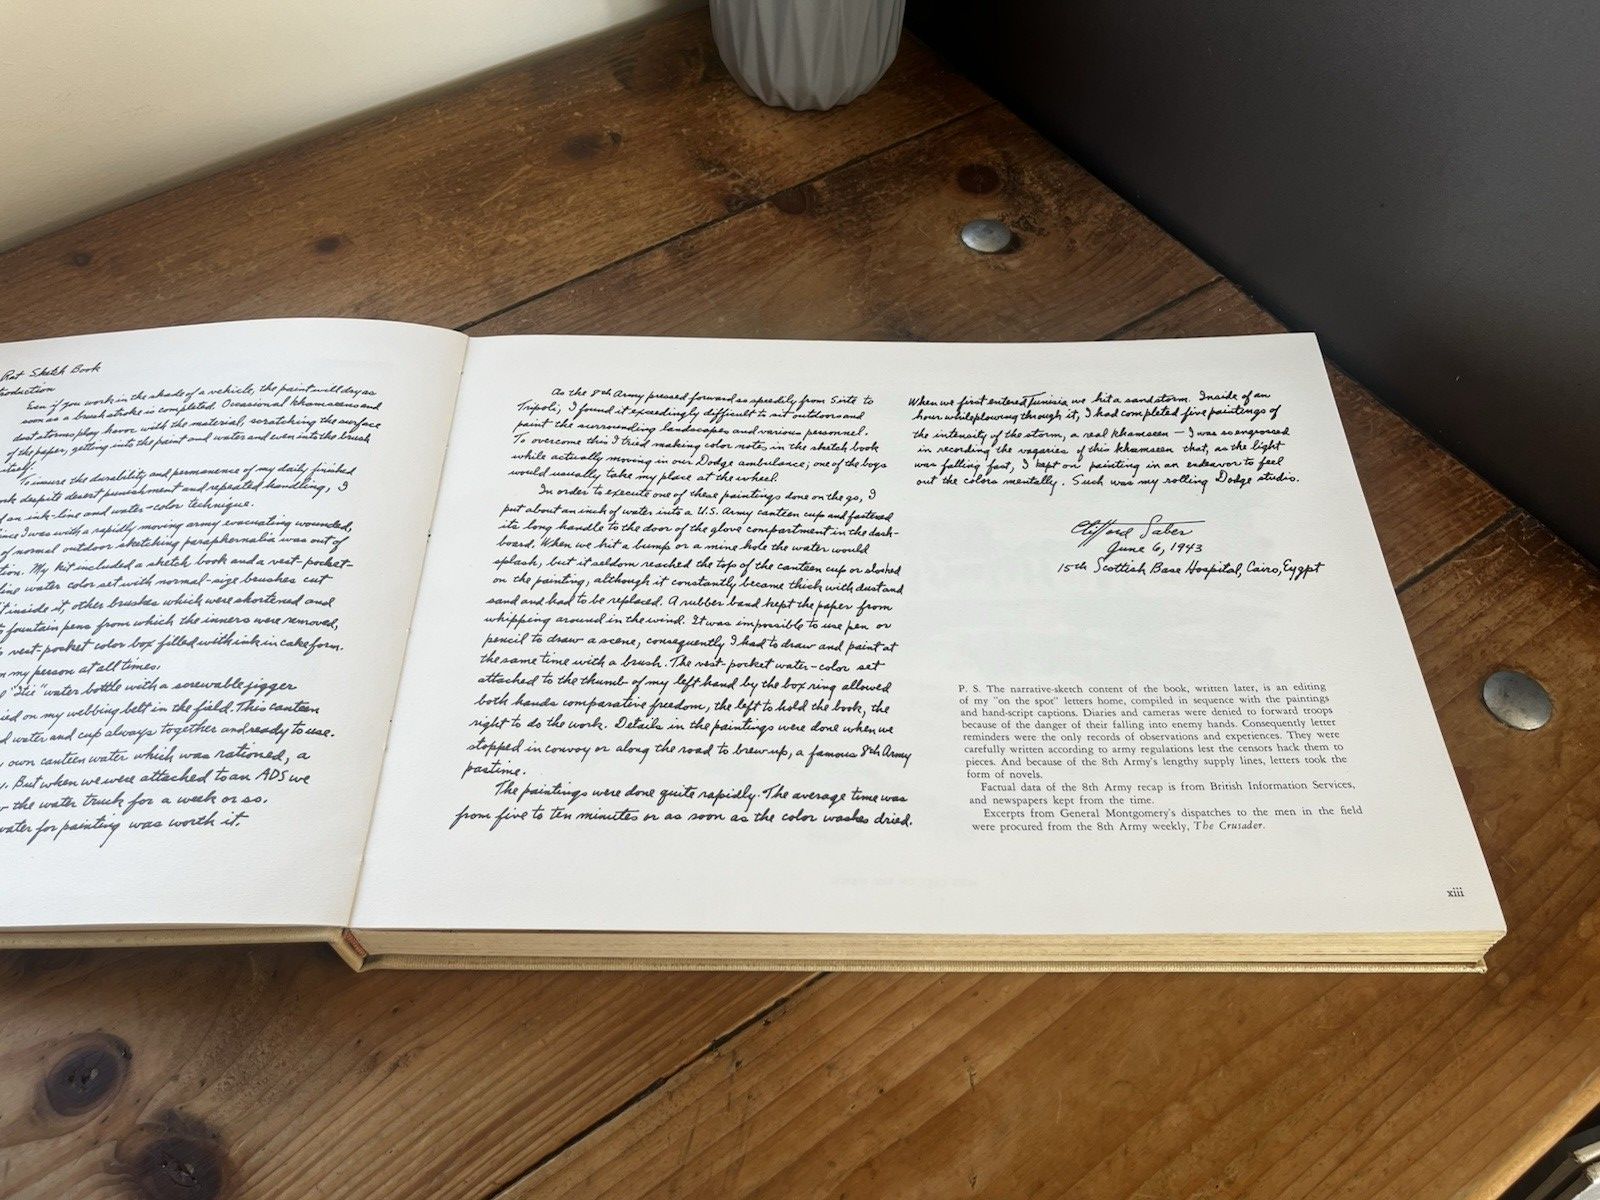 Rat Sketch Book
Even if you work in the shade of a vehicle, the paint will dry as
soon as a brush stroke is completed. Occasional khamseens and
dust storms play havoc with the material, scratching the surface
of the paper, getting into the paint and water and even into the brush
itself.
To insure the durability and permanence of my daily finished
despite desert punishment and repeated handling, I
an ink-line and water-color technique.
I was with a rapidly moving army evacuating wounded,
of normal outdoor sketching paraphernalia was out of
My kit included a sketch book and a vest-pocket-
water color set with normal-size brushes cut
inside it, other brushes which were shortened and
fountain pens from which the inners were removed,
vest-pocket color box filled with ink in cake form.
my person at all times.
water bottle with a screwable jigger
on my webbing belt in the field. This canteen
water and cup always together and ready to use.
own canteen water which was rationed, a
But when we were attached to an ADS we
the water truck for a week or so.
water for painting was worth it.
As the 8th Army pressed forward as speedily from Sirte to
Tripoli, I found it exceedingly difficult to sit outdoors and
paint the surrounding landscapes and various personnel.
To overcome this I tried making color notes in the sketch book
while actually moving in our Dodge ambulance; one of the boys
would usually take my place at the wheel.
In order to execute one of these paintings done on the go, I
put about an inch of water into a U.S. Army canteen cup and fastened
its long handle to the door of the glove compartment in the dash-
board. When we hit a bump or a mine hole the water would
splash, but it seldom reached the top of the canteen cup or sloshed
on the painting, although it constantly became thick with dust and
sand and had to be replaced. A rubber band kept the paper from
whipping around in the wind. It was impossible to use pen or
pencil to draw a scene, consequently I had to draw and paint at
the same time with a brush. The vest-pocket water-color set
attached to the thumb of my left hand by the box ring allowed
both hands comparative freedom, the left to hold the book, the
right to do the work. Details in the paintings were done when we
stopped in convoy or along the road to brew up, a famous 8th Army
pastime.
The paintings were done quite rapidly. The average time was
from five to ten minutes or as soon as the color washes dried.
When we first entered Tunisia we hit a sandstorm. Inside of an
hour while plowing through it, I had completed five paintings of
the intensity of the storm, a real khamseen — I was so engrossed
in recording the vagaries of this khamseen that, as the light
was falling fast, I kept on painting in an endeavor to feel
out the colors mentally. Such was my rolling Dodge studio.
Clifford Saber
June 6, 1943
15th Scottish Base Hospital, Cairo, Eygpt
P. S. The narrative-sketch content of the book, written later, is an editing
of my "on the spot" letters home, compiled in sequence with the paintings
and hand-script captions. Diaries and cameras were denied to forward troops
because of the danger of their falling into enemy hands. Consequently letter
reminders were the only records of observations and experiences. They were
carefully written according to army regulations lest the censors hack them to
pieces. And because of the 8th Army's lengthy supply lines, letters took the
form of novels.
Factual data of the 8th Army recap is from British Information Services,
and newspapers kept from the time.
Excerpts from General Montgomery's dispatches to the men in the field
were procured from the 8th Army weekly, The Crusader.
xiii